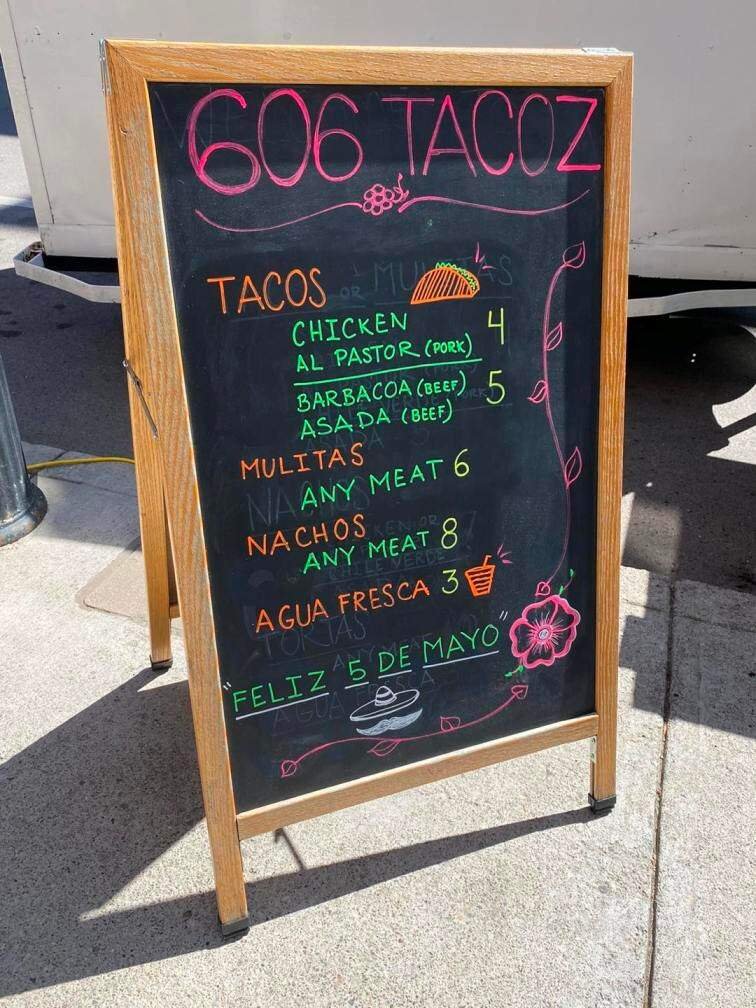 606 TACOZ
TACOS
CHICKEN 4
AL PASTOR (PORK)
BARBACOA (BEEF) 5
ASADA (BEEF)
MULITAS
ANY MEAT 6
NACHOS
ANY MEAT 8
AGUA FRESCA 3
"FELIZ 5 DE MAYO"